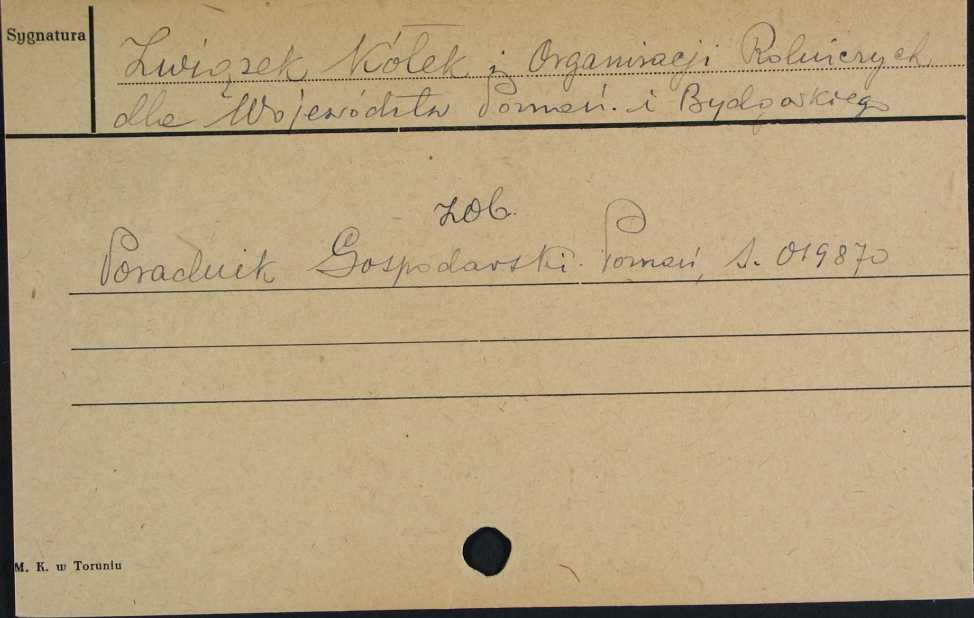 Sygnatura
Związek Kółek i Organizacji Rolniczych
dla Województw Poznań. i Bydgoskiego
zob.
Poradnik Gospodarski. Poznań, s. 019870
M. K. w Toruniu